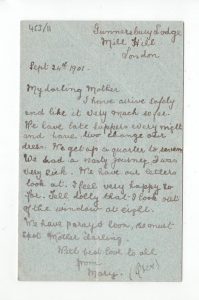 453/11
Gunnersbury Lodge
Mill Hill
London
Sept 24th 1901
My darling Mother
I have arive safely
and like it very much so far.
We have late suppers every night
and have two change our
dress. We get up a quarter to seven
We had a nasty journey I was
very sick. We have our letters
look at. I feel very happy so
far. Tell Dolly that I look out
of the window at eight.
We have pray's soon, so must
stop Mother darling.
With best love to all
from
Mary.